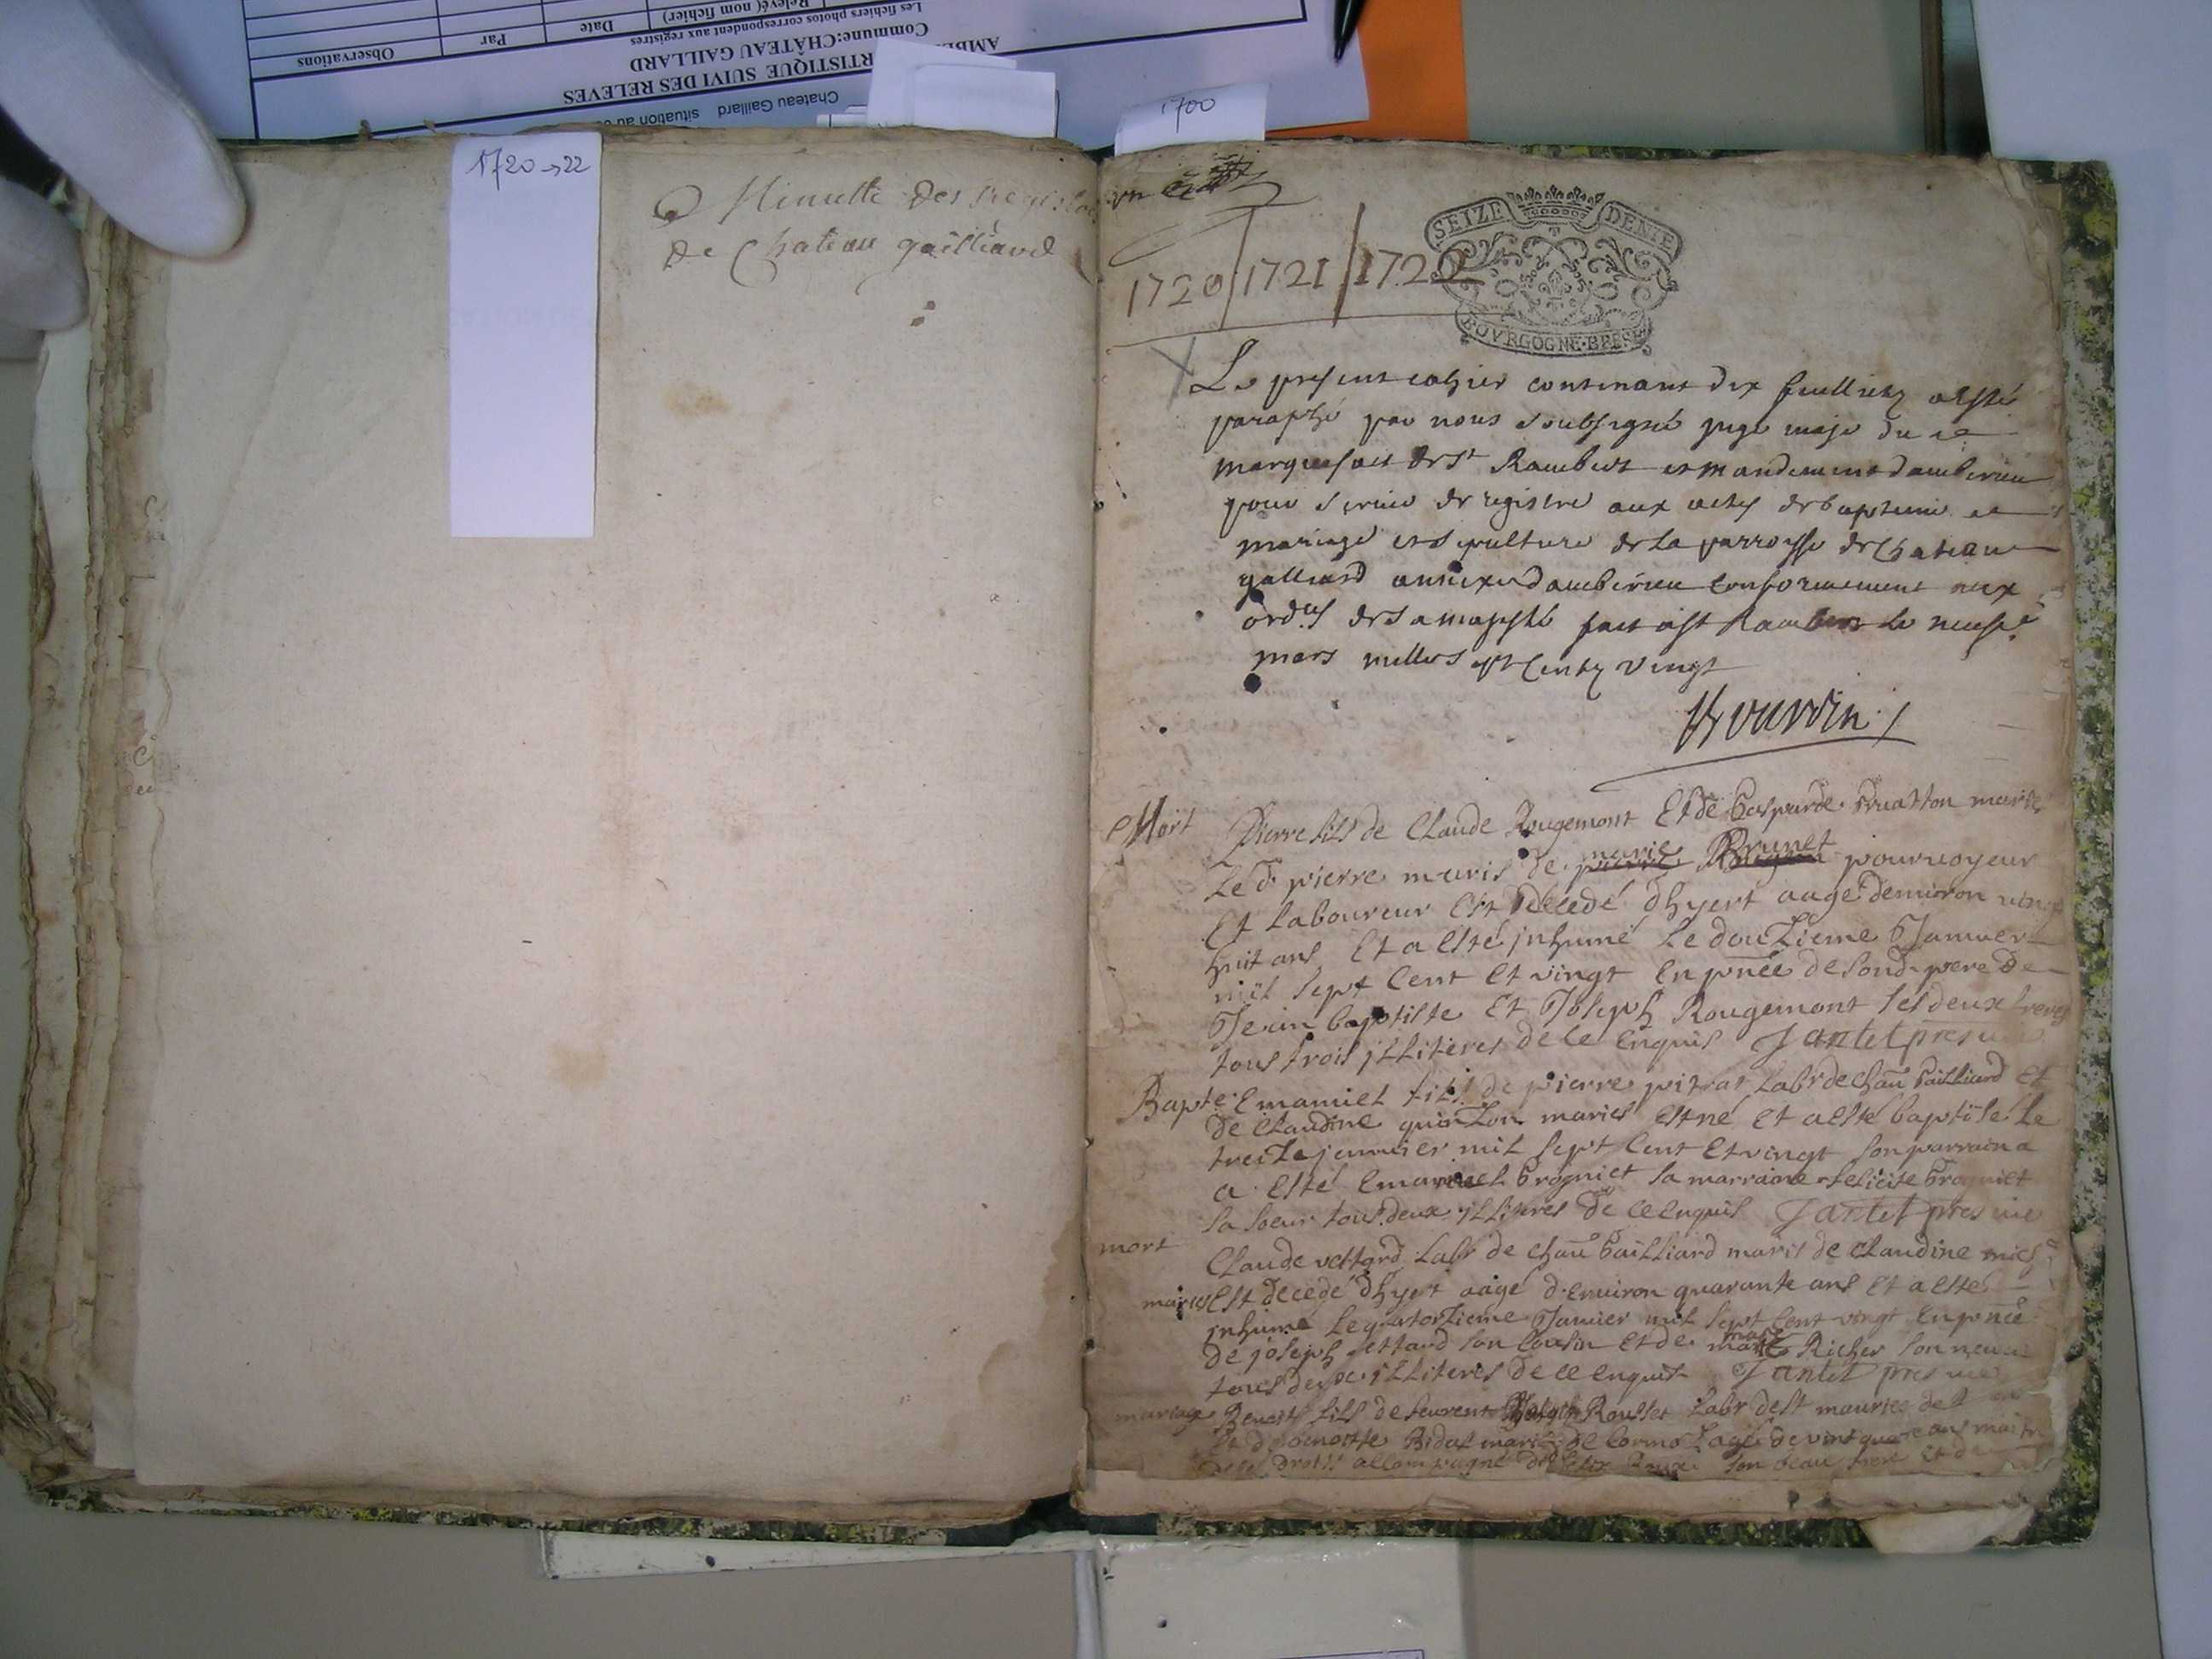 Observations
Par
Date
Relevé( nom fichier)
Les fichiers photos correspondent aux registres
Commune:CHÂTEAU GAILLARD
RTISTIQUE SUIVI DES RELEVES
Chateau Gaillard situation au
1700
1720→22
Minutte des Registres
de Chateau gailliard
1720/1721/1722
SEIZE DENIE
BOVRGOGNE·BRESSE
Le present cahier contenant dix feullietz a esté
paraphé par nous soubsigné juge maje du
marquisat de St Rambert et mandement dambérieu
pour servir de registre aux actes de bapteme et
mariage et sepulture de la parroysse de Chateau
galliard annexe dambérieu conformement aux
ordces de sa majesté fait a St Rambert le neufe
mars mille sept Centz vingt
Mort Pierre fils de Claude Rougemont Et de Gasparde mariés
Le d. pierre maris de marie Brunet pourvoyeur
Et Laboureur Est decedé d'hyert aagé denviron vingt
huit ans Et a esté inhumé Le douzieme Janvier
mil sept Cent Et vingt En pnce de son d. pere de
Jean baptiste Et Joseph Rougemont ses deux freres
tous trois illiteres de ce Enquis Jantet
Bapte Emanuel fils de pierre pitrat Labr de chau Gailliard Et
de Claudine quinson mariés Est né Et a esté baptisé Le
treize janvier mil sept Cent Et vingt son parrain a
a Esté Emanuel brogniet sa marraine felicite brogniet
sa soeur tous deux illiteres de ce Enquis Jantet
mort Claude vettard Labr de chau Gailliard maris de Claudine
mariés Est decedé d'hyert aagé d'Environ quarante ans Et a esté
inhumé Le quatorzieme Janvier mil sept Cent vingt En pnce
de joseph vettard son Cousin Et de Richer son neveu
tous deux illiteres de ce enquis Jantet
mariage Benoit fils de Rousset Labr de St maurice de
Bidal mariés de agé de vint quatre ans
droits accompagné de son beau frere Et